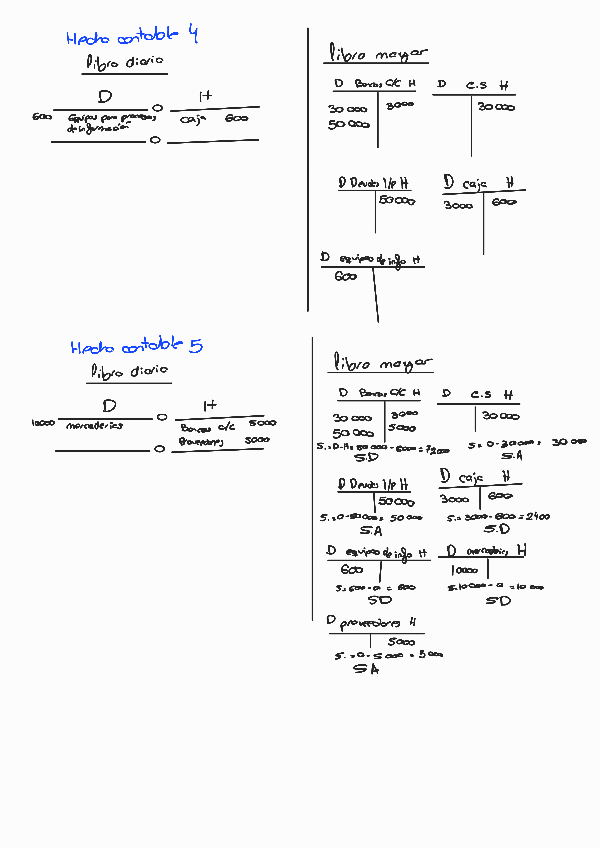 Hecho contable 4
libro diario
D H
600 Equipos para procesos de información caja 600
libro mayor
D Bancos C/C H
30 000 3000
50 000
D C.S H
30 000
D Deudas l/p H
50 000
D caja H
3000 600
D equipos de info H
600
Hecho contable 5
libro diario
D H
10000 mercaderías Bancos c/c 5000
Proveedores 5000
libro mayor
D Bancos C/C H
30 000 3000
50 000 5000
S.D
D C.S H
30 000
S.A
D Deudas l/p H
50 000
S. = 0 - 50 000 = 50 000
S.A
D caja H
3000 600
S. = 3000 - 600 = 2400
S.D
D equipos de info H
600
S = 600 - 0 = 600
SD
D mercaderías H
10000
S. 10 000 - 0 = 10 000
SD
D proveedores H
5000
S. = 0 - 5 000 = 5 000
SA